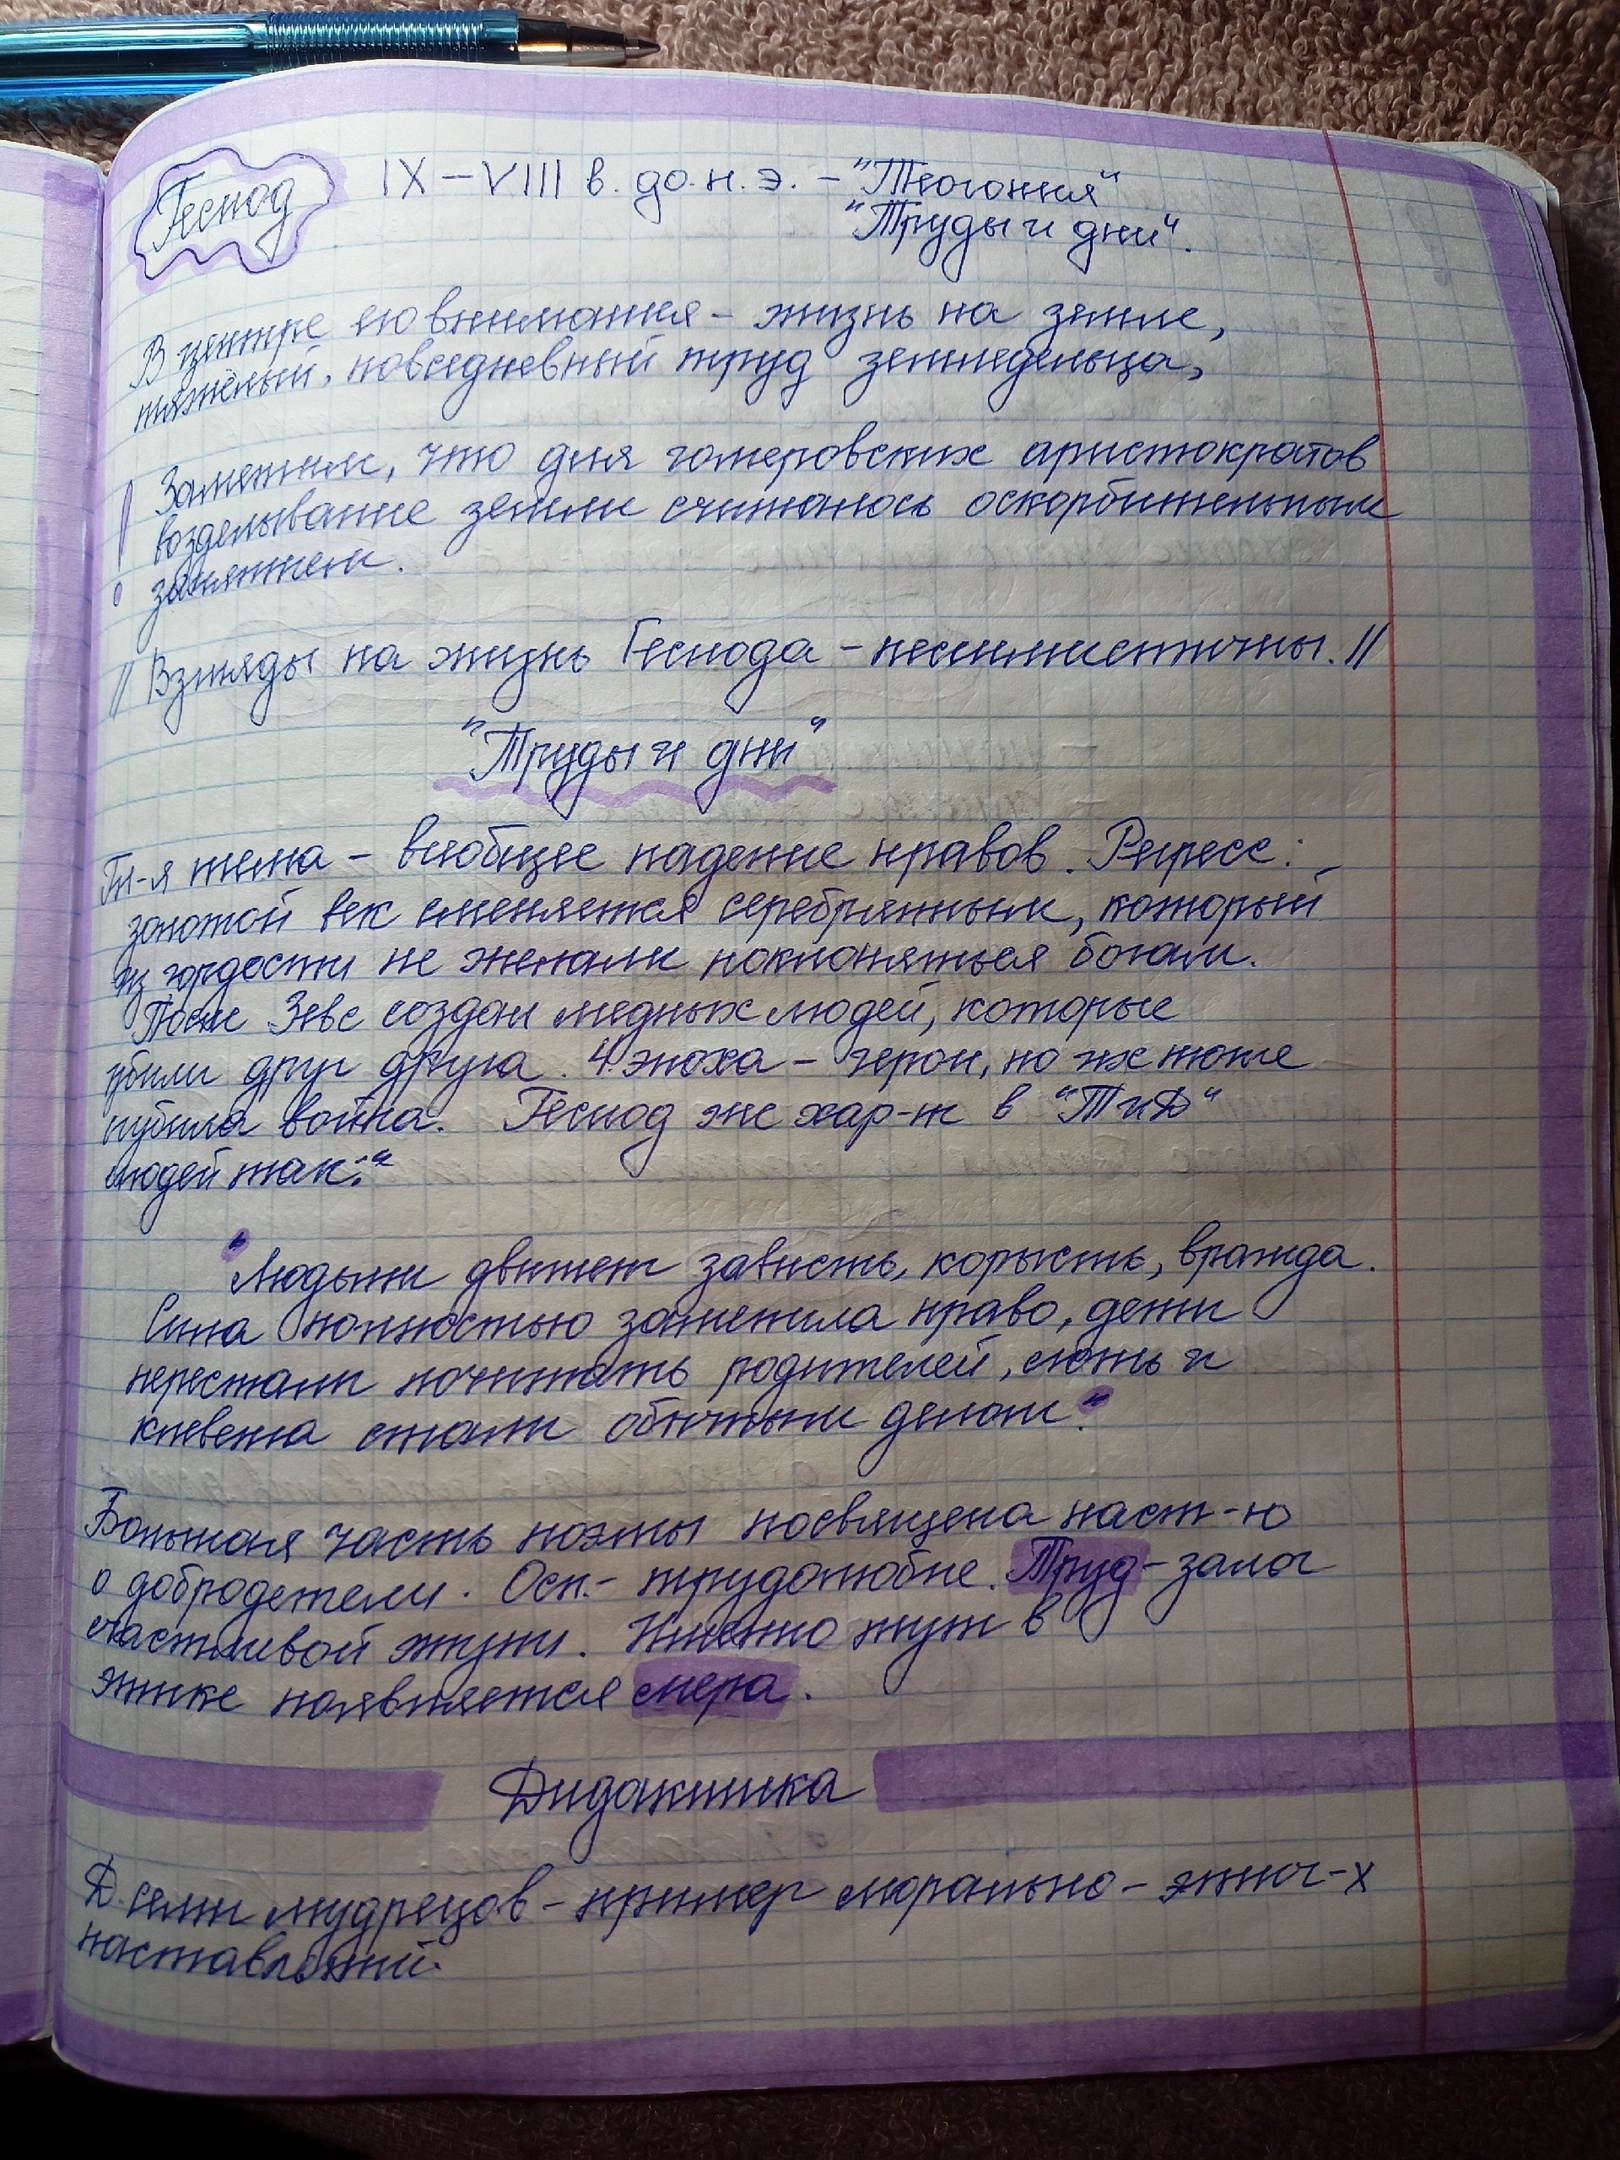 Гесиод IX – VIII в. до. н. э. – "Теогония"
"Труды и дни".
В центре его внимания – жизнь на земле,
тяжёлый, повседневный труд земледельца,
Заметим, что для гомеровских аристократов
возделывание земли считалось оскорбительным
занятием.
// Взгляды на жизнь Гесиода – пессимистичны. //
"Труды и дни"
Гл-я тема – всеобщее падение нравов. Регресс:
золотой век сменяется серебрянным, который
из гордости не желали поклоняться богам.
После Зевс создал медных людей, которые
убили друг друга. 4 эпоха – герои, но их тоже
губила война. Гесиод же хар-т в "ТиД"
людей так:"
"Людьми движет зависть, корысть, вражда.
Сила полностью заменила право, дети
перестали почитать родителей, лесть и
клевета стали обычным делом"
Большая часть поэмы посвящена наст-ю
о добродетели. Осн.- трудолюбие. Труд-залог
счастливой жизни. Именно тут в
этике появляется мера.
Дидактика
Д. семи мудрецов – пример морально – этич-х
наставлений.